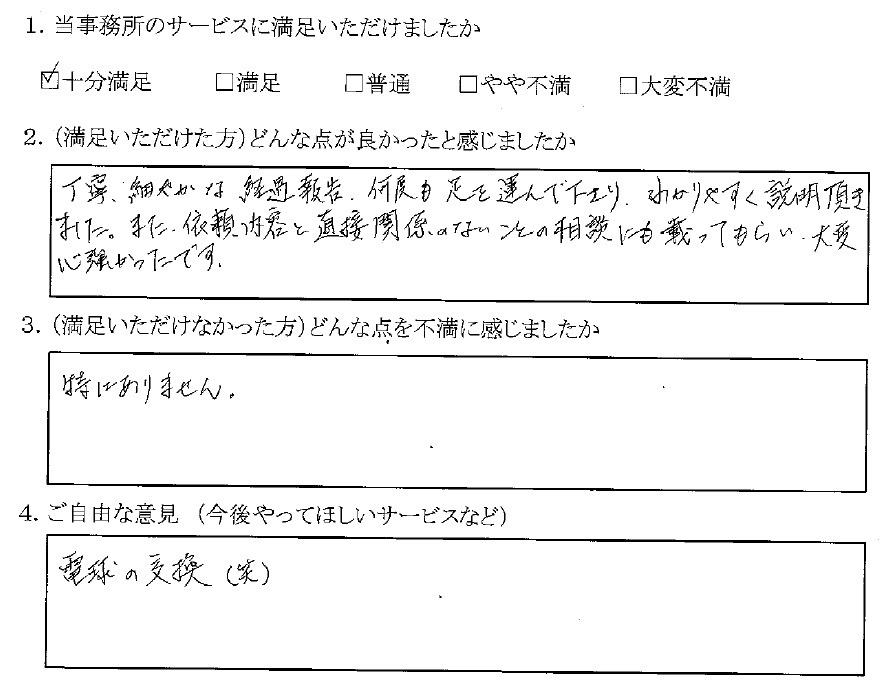 1. 当事務所のサービスに満足いただけましたか
☑十分満足 □満足 □普通 □やや不満 □大変不満
2. (満足いただけた方)どんな点が良かったと感じましたか
丁寧、細やかな経過報告、何度も足を運んで下さり、わかりやすく説明頂き
ました。また、依頼内容と直接関係のないことの相談にも載ってもらい、大変
心強かったです。
3. (満足いただけなかった方)どんな点を不満に感じましたか
特にありません。
4. ご自由な意見 (今後やってほしいサービスなど)
電球の交換 (笑)